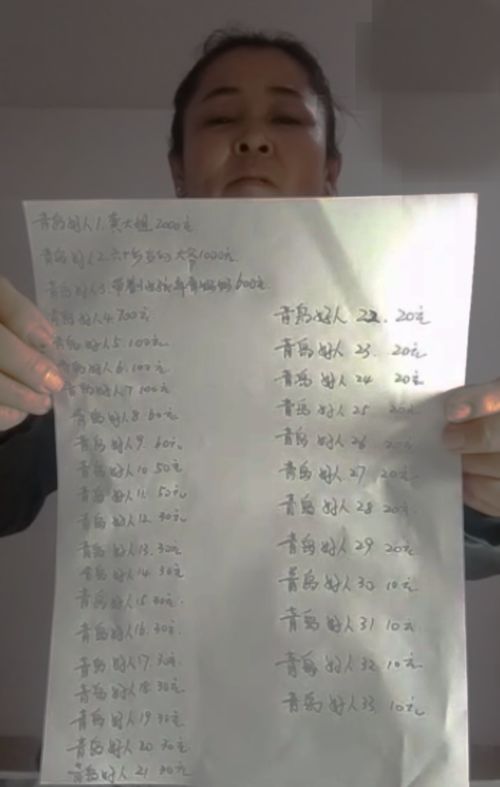 青岛好人1.黄大姐2000元
青岛好人2.六十多岁的大爷1000元.
青岛好人3.带着女孩年青妈妈600元.
青岛好人4.200元
青岛好人5.100元
青岛好人6.100元
青岛好人7.100元
青岛好人8.60元
青岛好人9.60元
青岛好人10.50元
青岛好人11.50元
青岛好人12.30元
青岛好人13.30元
青岛好人14.30元
青岛好人15.30元.
青岛好人16.30元.
青岛好人17.30元.
青岛好人18.30元
青岛好人19.30元
青岛好人20.30元
青岛好人21.30元
青岛好人22.20元
青岛好人23.20元
青岛好人24 20元
青岛好人25 20元
青岛好人26 20元
青岛好人27.20元
青岛好人28.20元
青岛好人29 20元
青岛好人30 10元
青岛好人31 10元
青岛好人32.10元
青岛好人33.10元